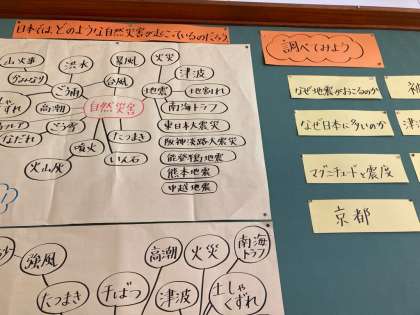 日本では、どのような自然災害が起こっているのだろう
調べてみよう
山火事
洪水
暴風
火災
かみなり
ごう雨
台風
津波
地震
地割れ
自然災害
高潮
南海トラフ
ごう雪
なだれ
たつまき
東日本大震災
噴火
阪神淡路大震災
いん石
能登半島地震
火山灰
熊本地震
中越地震
なぜ地震がおこるのか
なぜ日本に多いのか
マグニチュードと震度
京都
強風
たつまき
干ばつ
高潮
津波
火災
南海
トラフ
土しゃ
くずれ